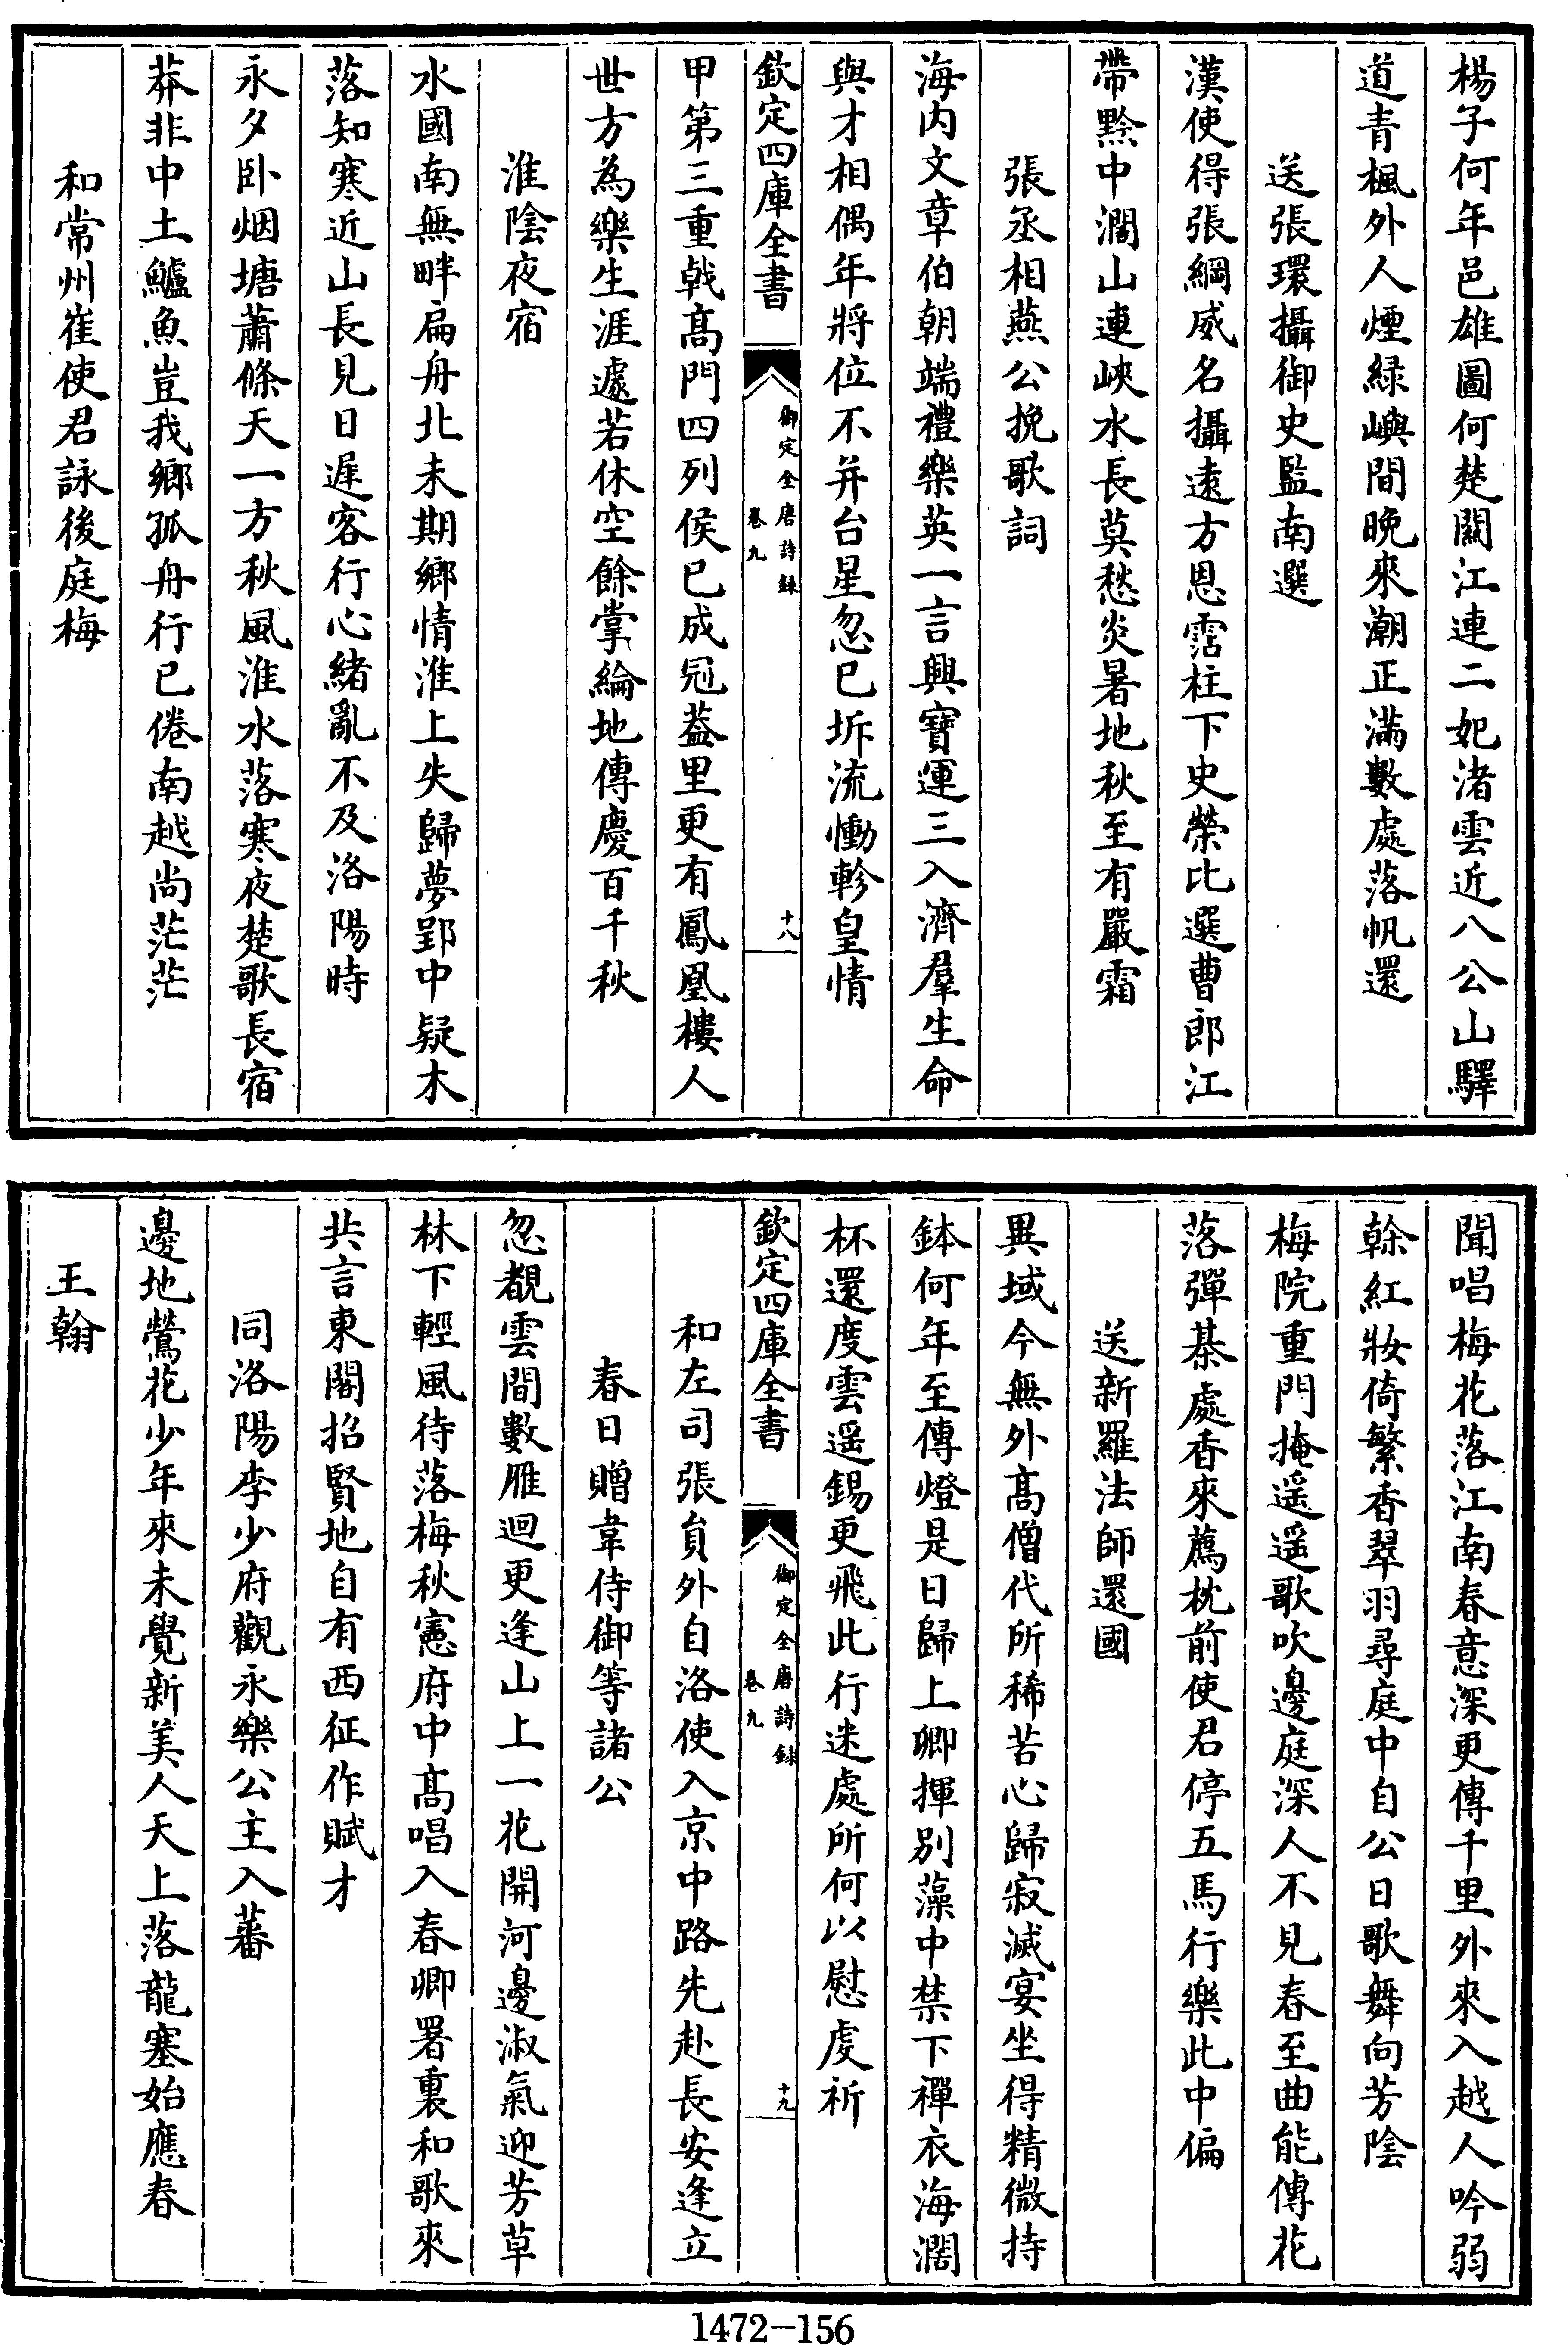 楊子何年邑雄圖何楚關江連二妃渚雲近八公山驛
道青楓外人煙緑嶼間晚來潮正滿數處落帆還
送張環攝御史監南選
漢使得張綱威名攝遠方恩霑柱下史榮比選曹郎江
帶黔中濶山連峽水長莫愁炎暑地秋至有嚴霜
張丞相燕公挽歌詞
海内文章伯朝端禮樂英一言興寶運三入濟羣生命
與才相偶年將位不并台星忽已坼流慟軫皇情
欽定四庫全書
御定全唐詩録
卷九
十八
甲第三重戟髙門四列侯已成冠葢里更有鳳凰樓人
世方為樂生涯遽若休空餘掌綸地傳慶百千秋
淮陰夜宿
水國南無畔扁舟北未期鄉情淮上失歸夢郢中疑木
落知寒近山長見日遲客行心緒亂不及洛陽時
永夕卧烟塘蕭條天一方秋風淮水落寒夜楚歌長宿
莽非中土鱸魚豈我鄉孤舟行已倦南越尚茫茫
和常州崔使君詠後庭梅
聞唱梅花落江南春意深更傳千里外來入越人吟弱
榦紅妝倚繁香翠羽尋庭中自公日歌舞向芳陰
梅院重門掩遥遥歌吹邊庭深人不見春至曲能傳花
落彈棊處香來薦枕前使君停五馬行樂此中偏
送新羅法師還國
異域今無外髙僧代所稀苦心歸寂滅宴坐得精微持
鉢何年至傳燈是日歸上卿揮别藻中禁下禪衣海濶
杯還度雲遥錫更飛此行迷處所何以慰虔祈
欽定四庫全書
御定全唐詩録
卷九
十九
和左司張員外自洛使入京中路先赴長安逢立
春日贈韋侍御等諸公
忽覩雲間數雁迴更逢山上一花開河邊淑氣迎芳草
林下輕風待落梅秋憲府中髙唱入春卿署裏和歌來
共言東閣招賢地自有西征作賦才
同洛陽李少府觀永樂公主入蕃
邊地鶯花少年來未覺新美人天上落龍塞始應春
王翰
1472-156